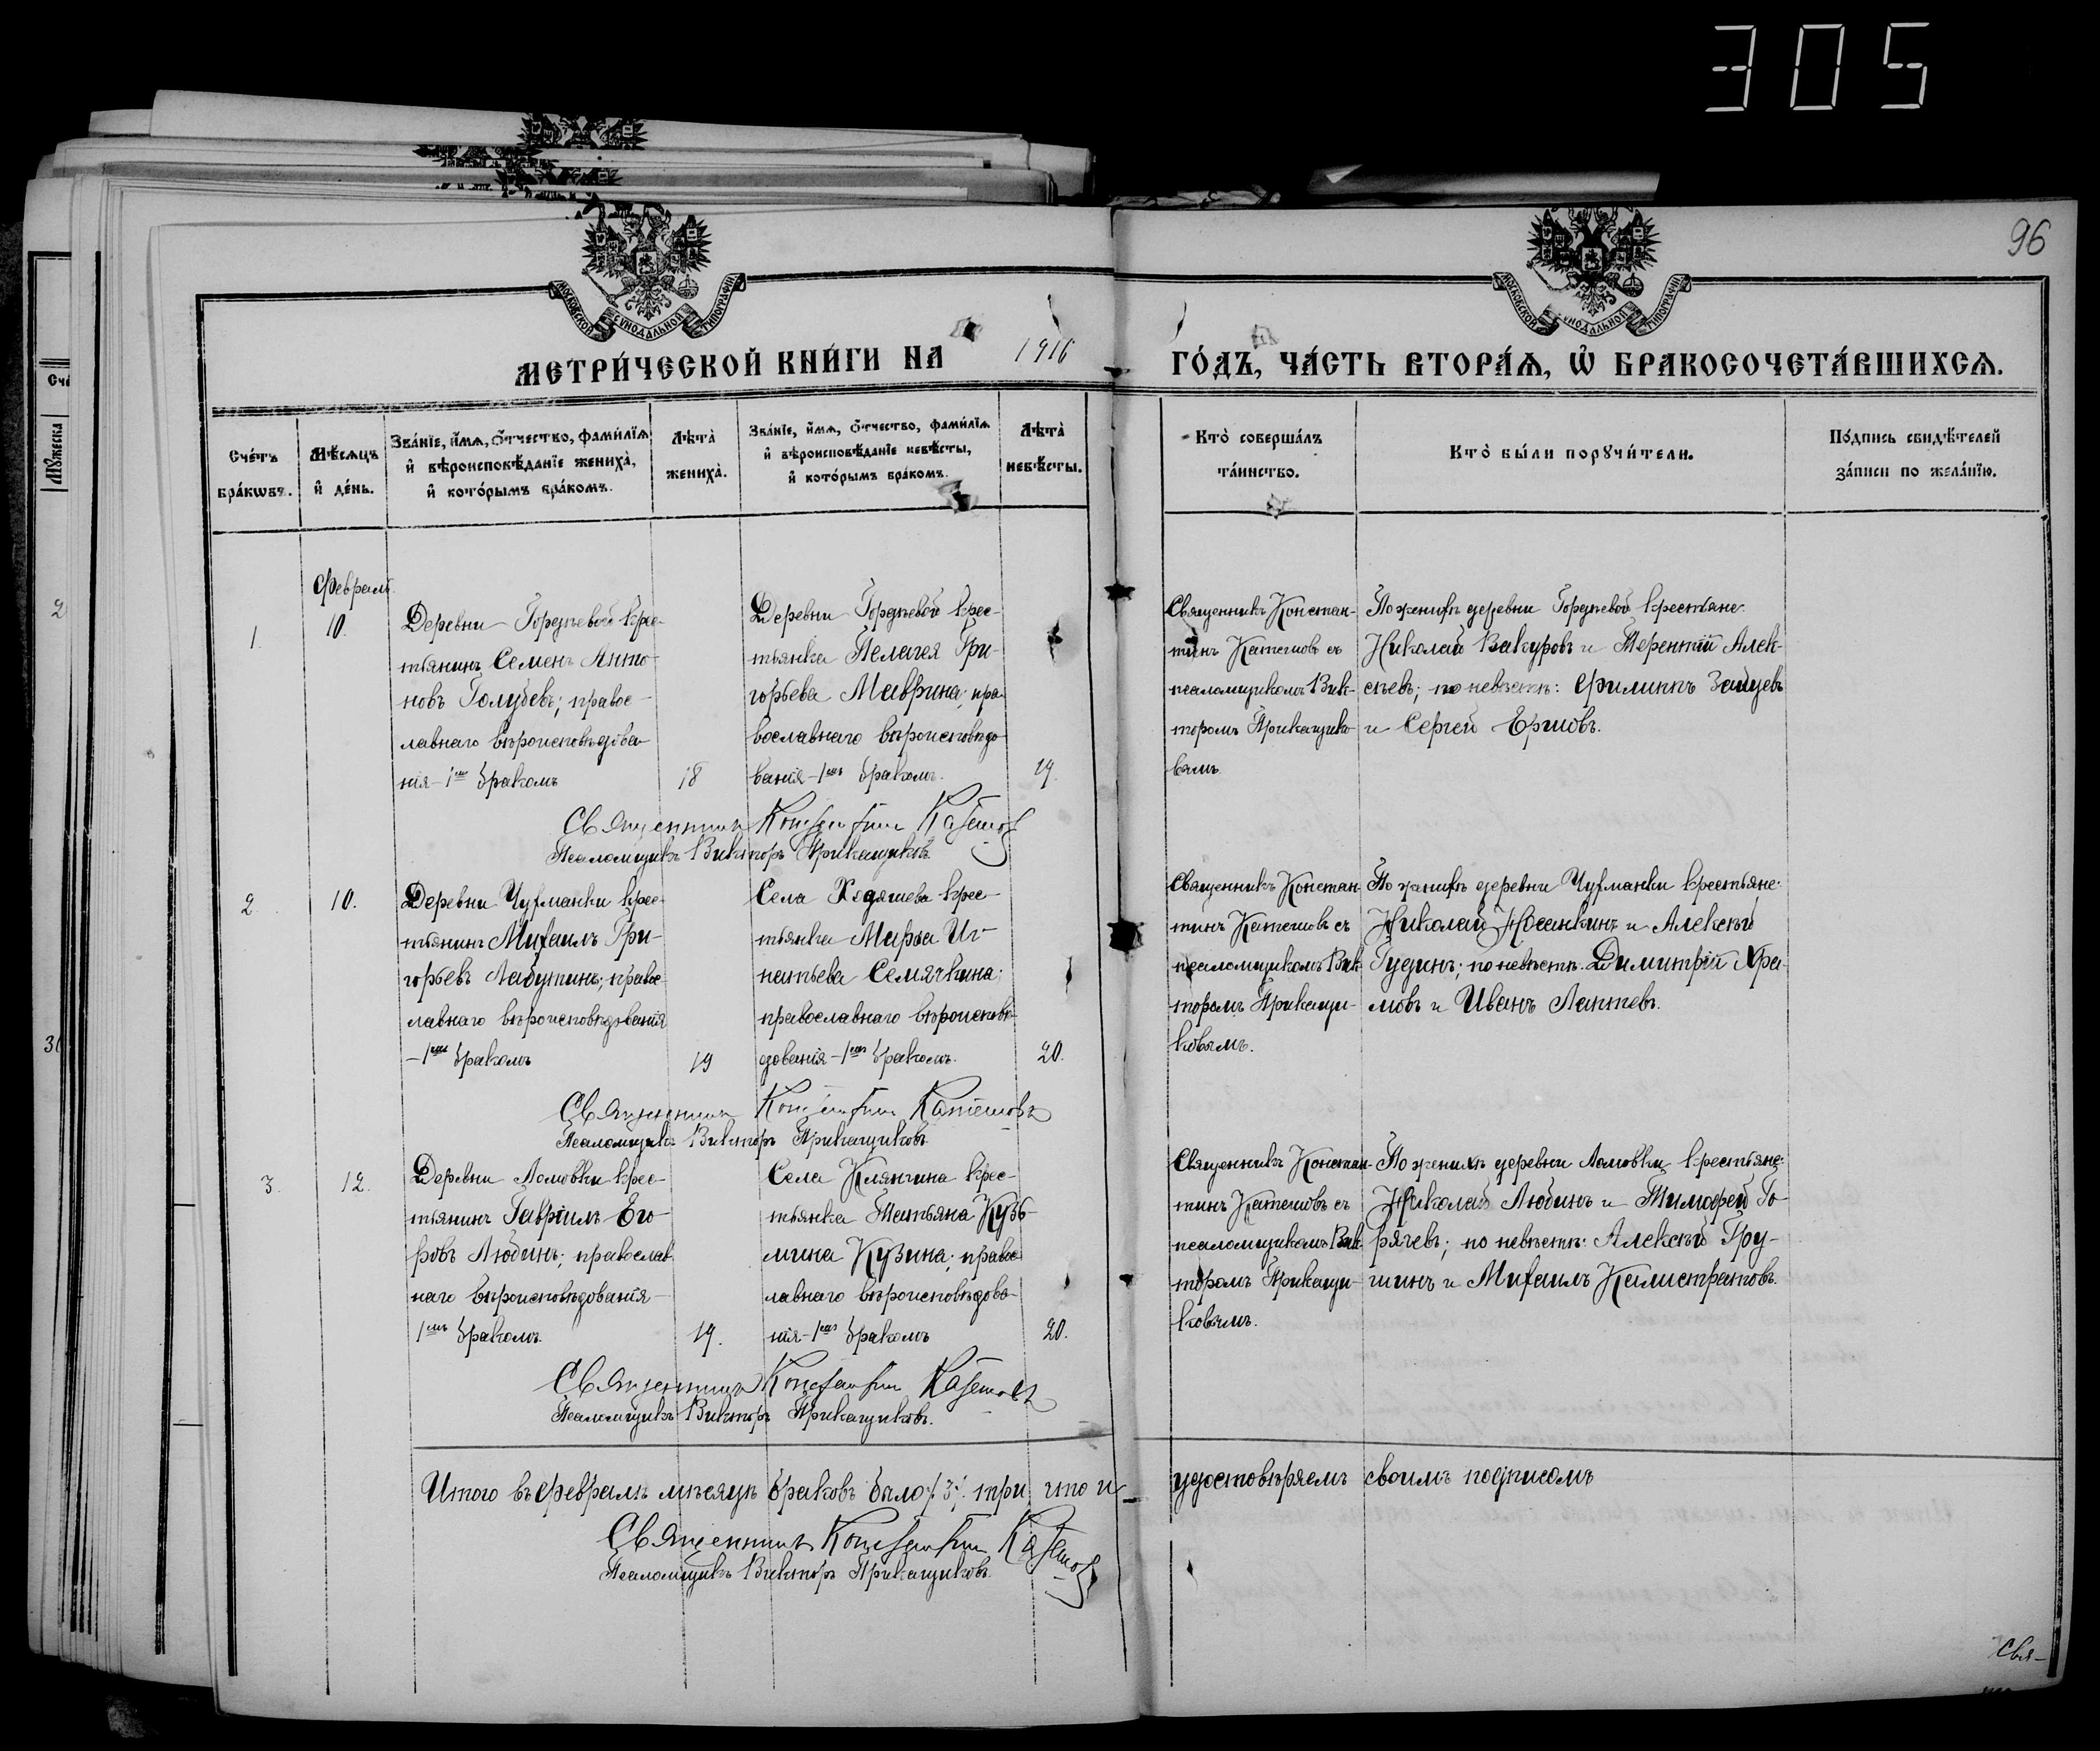 305
96
МОСКОВСКОЙ СѴНОДАЛЬНОЙ ТИПОГРАФІИ
МОСКОВСКОЙ СѴНОДАЛЬНОЙ ТИПОГРАФІИ
МЕТРИ́ЧЕСКОЙ КНИ́ГИ НА 1916 ГО́ДЪ, ЧА́СТЬ ВТОРА́Ѧ, Ѽ БРАКОСОЧЕТА́ВШИХСѦ.
Сче́тъ бра́кѡвъ.
Мѣ́сѧцъ и҆ де́нь.
Зва́нїе, и҆́мѧ, ѻ҆́тчество, фами́лїѧ и҆ вѣроисповѣ́данїе жениха̀, и҆ кото́рымъ бра́комъ.
Лѣ́та̀ жениха̀.
Зва́нїе, и҆́мѧ, ѻ҆́тчество, фами́лїѧ и҆ вѣроисповѣ́данїе невѣ́сты, и҆ кото́рымъ бра́комъ.
Лѣ́та̀ невѣ́сты.
Кто̀ соверша́лъ та́инство.
Кто̀ бы́ли порꙋчи́тели.
По́дпись свидѣ́телей за́писи по жела́нїю.
Февраль
1.
10.
Деревни Гордѣевой крес-
тьянинъ Семенъ Анто-
новъ Голубевъ; правос-
лавнаго вѣроисповѣдова-
нія - 1мъ бракомъ
18
Деревни Гордѣевой крес-
тьянка Пелагея Гри-
горьева Маврина; пра-
вославнаго вѣроисповѣдо-
ванія - 1мъ бракомъ.
19.
Священникъ Констан-
тинъ Катешовъ съ
псаломщикомъ Вик-
торомъ Прикащико-
вымъ
По женихѣ деревни Гордѣевой крестьяне:
Николай Вакуровъ и Терентій Алек-
сѣевъ; по невѣстѣ: Филиппъ Зайцевъ
и Сергей Ершовъ.
Священникъ Константинъ Катешовъ
Псаломщикъ Викторъ Прикащиковъ
2.
10.
Деревни Чуфманки крес-
тьянинъ Михаилъ Гри-
горьевъ Лабутинъ; правос-
лавнаго вѣроисповѣдованія
- 1мъ бракомъ
19
Села Хедяшева крес-
тьянка Марѳа Иг-
натьева Семячкина;
православнаго вѣроисповѣ-
дованія - 1мъ бракомъ.
20.
Священникъ Констан-
тинъ Катешовъ съ
псаломщикомъ Вик-
торомъ Прикащи-
ковымъ.
По женихѣ деревни Чуфманки крестьяне:
Николай и Алексѣй
Гудинъ; по невѣстѣ: Димитрій Хра-
мовъ и Иванъ Лаптевъ.
Священникъ Константинъ Катешовъ
Псаломщикъ Викторъ Прикащиковъ
3.
12.
Деревни Ломовки крес-
тьянинъ Гавріилъ Его-
ровъ Любинъ; православ-
наго вѣроисповѣдованія -
1мъ бракомъ.
19.
Села Клянчина крес-
тьянка Татьяна Кузь-
мина Кузина; правос-
лавнаго вѣроисповѣдова-
нія - 1мъ бракомъ
20.
Священникъ Констан-
тинъ Катешовъ съ
псаломщикомъ Вик-
торомъ Прикащи-
ковымъ.
По женихѣ деревни Ломовки крестьяне:
Николай Любинъ и Тимофей Го-
рячевъ; по невѣстѣ: Алексѣй Гру-
шинъ и Михаилъ Калистратовъ.
Священникъ Константинъ Катешовъ
Псаломщикъ Викторъ Прикащиковъ.
Итого въ Февралѣ мѣсяцѣ браковъ было /:3:/ три, что и удостовѣряемъ своимъ подписомъ
Священникъ Константинъ Катешовъ
Псаломщикъ Викторъ Прикащиковъ.
Свя-